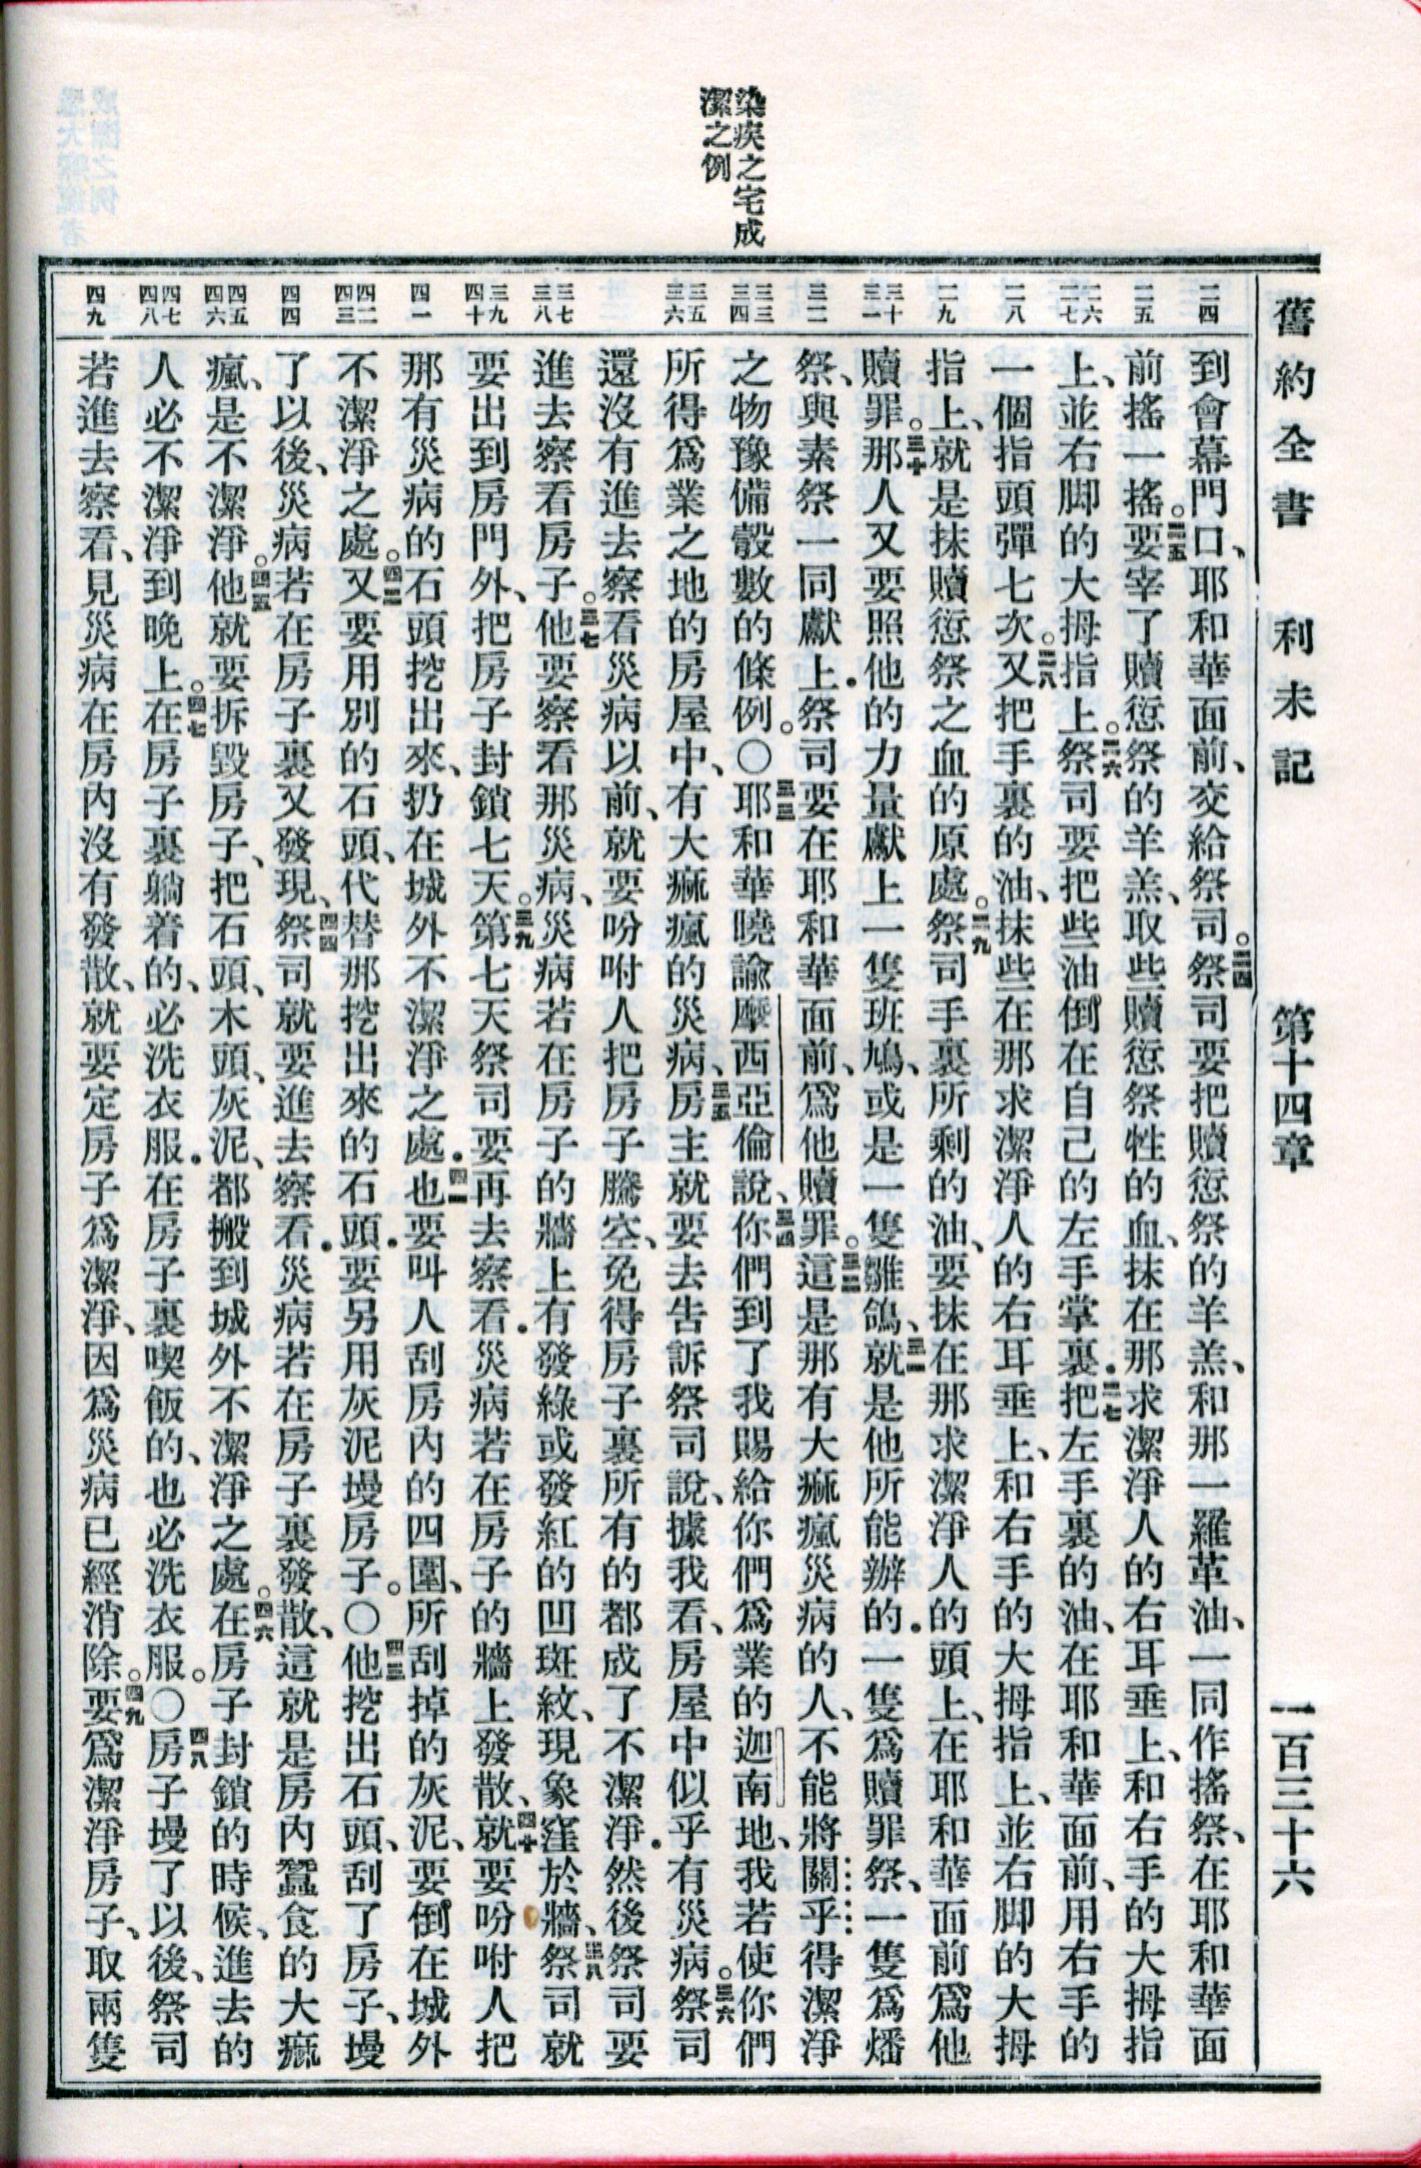 舊約全書　利未記　第十四章　一百三十六
染疾之宅成
潔之例
二四
到會幕門口、耶和華面前、交給祭司。二四祭司要把贖愆祭的羊羔、和那一羅革油、一同作搖祭、在耶和華面
二五
前搖一搖。二五要宰了贖愆祭的羊羔、取些贖愆祭牲的血、抹在那求潔淨人的右耳垂上、和右手的大拇指
二六 二七
上、並右脚的大拇指上。二六祭司要把些油倒在自己的左手掌裏．二七把左手裏的油、在耶和華面前、用右手的
二八
一個指頭彈七次。二八又把手裏的油、抹些在那求潔淨人的右耳垂上、和右手的大拇指上、並右脚的大拇
二九
指上、就是抹贖愆祭之血的原處。二九祭司手裏所剩的油、要抹在那求潔淨人的頭上、在耶和華面前爲他
三十 三一
贖罪。三十那人又要照他的力量獻上一隻班鳩、或是一隻雛鴿、三一就是他所能辦的．一隻爲贖罪祭、一隻爲燔
三二
祭、與素祭一同獻上．祭司要在耶和華面前、爲他贖罪。三二這是那有大痲瘋災病的人、不能將關乎得潔淨
三三 三四
之物豫備彀數的條例。〇三三耶和華曉諭摩西亞倫說、三四你們到了我賜給你們爲業的迦南地、我若使你們
三五 三六
所得爲業之地的房屋中、有大痲瘋的災病、三五房主就要去告訴祭司說、據我看、房屋中似乎有災病。三六祭司
還沒有進去察看災病以前、就要吩咐人把房子騰空、免得房子裏所有的都成了不潔淨．然後祭司要
三七 三八
進去察看房子。三七他要察看那災病、災病若在房子的牆上有發綠或發紅的凹斑紋、現象窪於牆、三八祭司就
三九 四十
要出到房門外、把房子封鎖七天。三九第七天祭司要再去察看．災病若在房子的牆上發散、四十就要吩咐人把
四一
那有災病的石頭挖出來、扔在城外不潔淨之處．四一也要叫人刮房內的四圍、所刮掉的灰泥、要倒在城外
四二 四三
不潔淨之處。四二又要用別的石頭、代替那挖出來的石頭．要另用灰泥墁房子。〇四三他挖出石頭、刮了房子、墁
四四
了以後、災病若在房子裏又發現、四四祭司就要進去察看．災病若在房子裏發散、這就是房內蠶食的大痲
四五 四六
瘋、是不潔淨。四五他就要拆毀房子、把石頭、木頭、灰泥、都搬到城外不潔淨之處。四六在房子封鎖的時候、進去的
四七 四八
人必不潔淨到晚上。四七在房子裏躺着的、必洗衣服．在房子裏喫飯的、也必洗衣服。〇四八房子墁了以後、祭司
四九
若進去察看、見災病在房內沒有發散、就要定房子爲潔淨、因爲災病已經消除。四九要爲潔淨房子、取兩隻